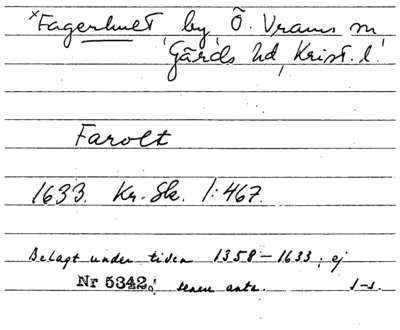 ×Fagerhult, by, Ö. Vrams sn
Gärds hd, Krist. l.
Farolt
1633. Kr. Sk. 1:467.
Belagt under tiden 1358–1633; ej
Nr 5342. senare ant. s–s.